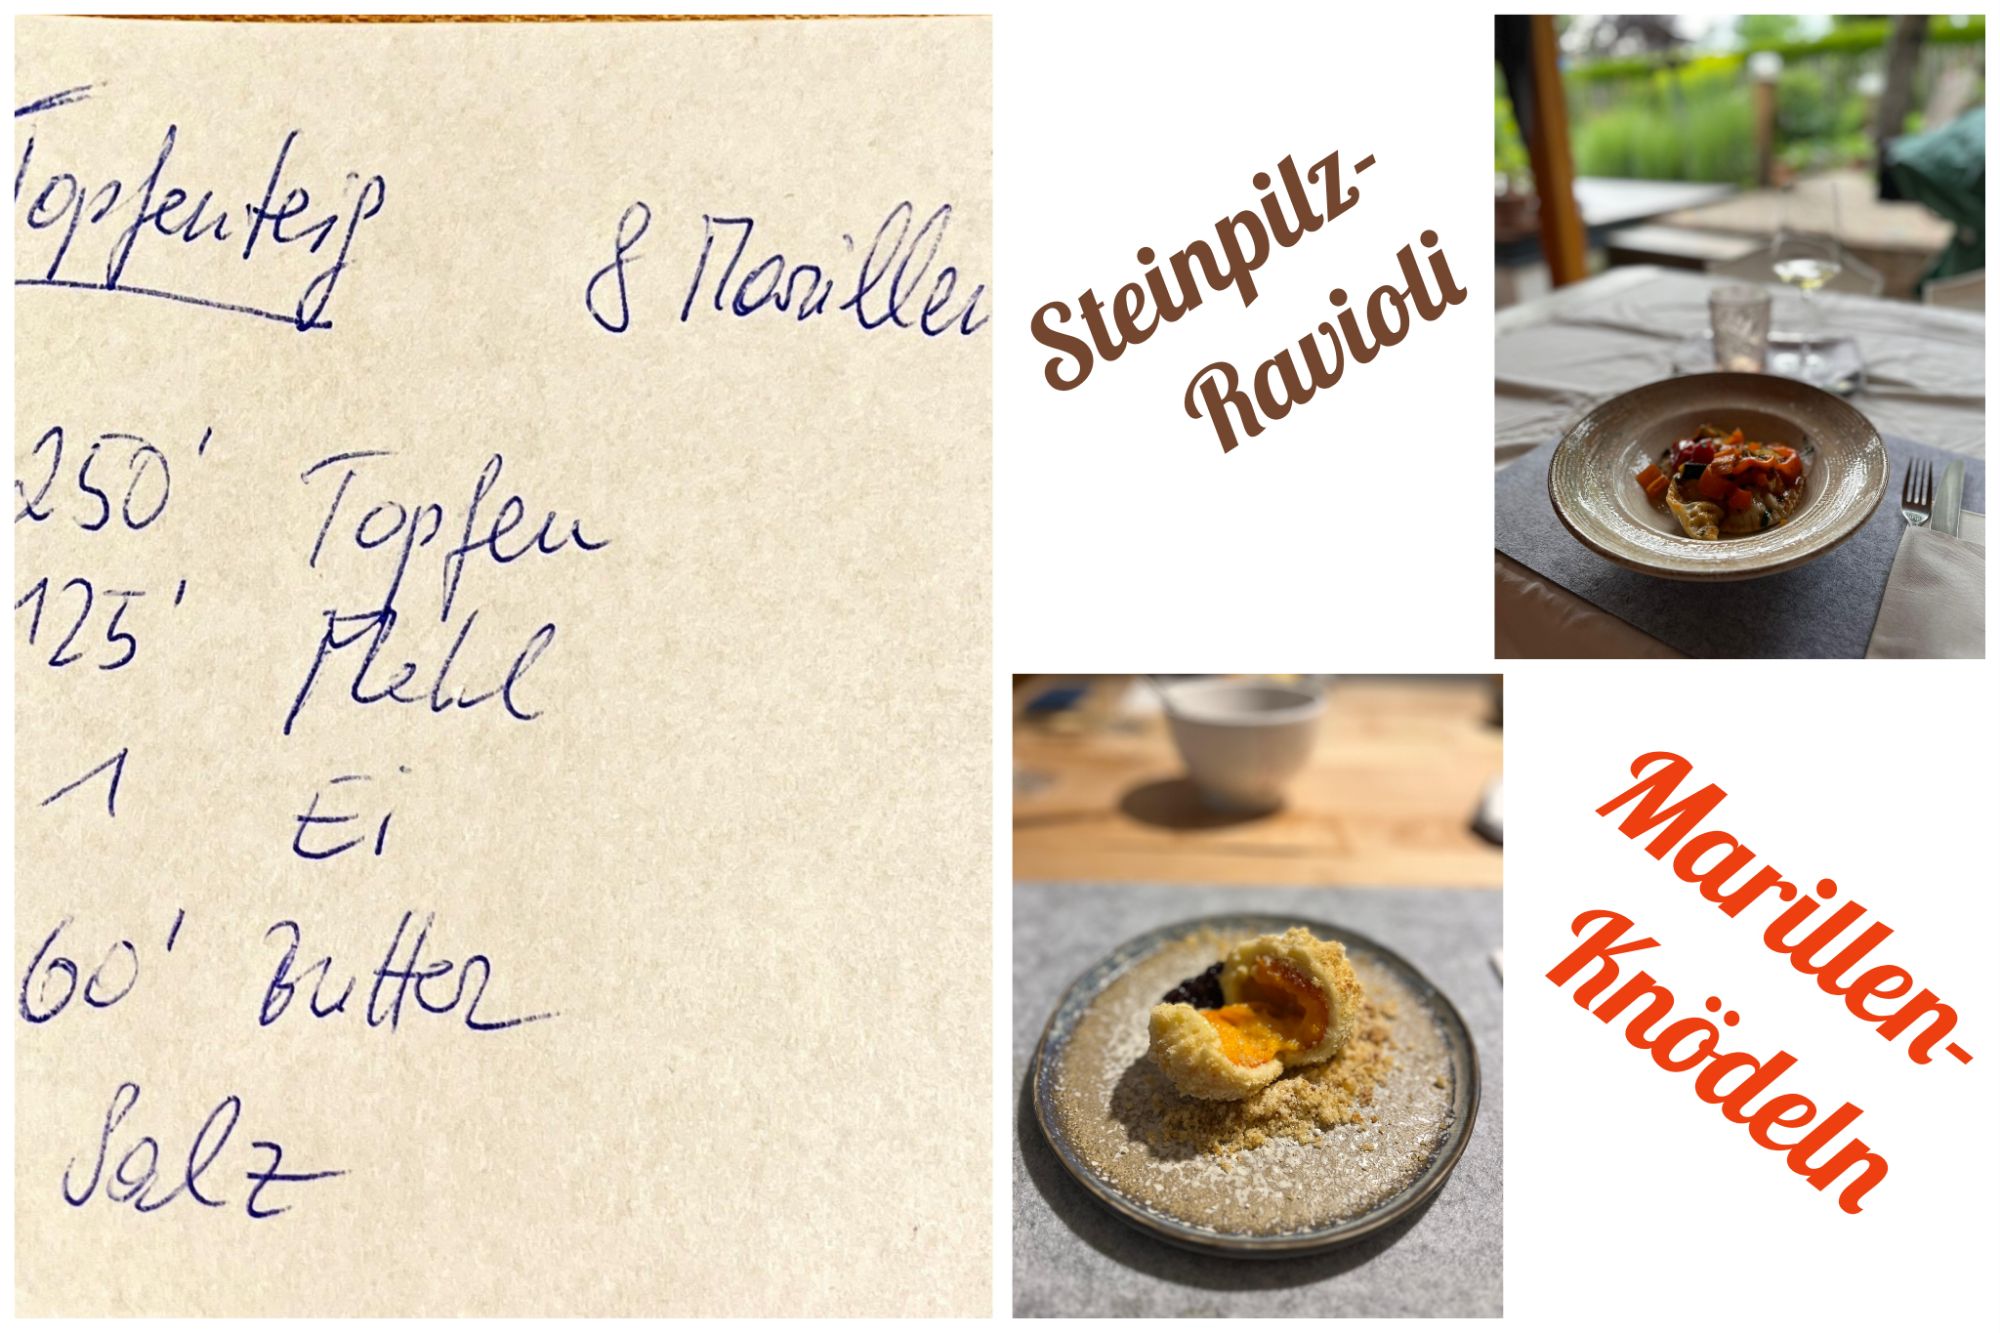 Topfenteig
8 Marillen
250' Topfen
125' Mehl
1 Ei
60' Butter
Salz
Steinpilz-
Ravioli
Marillen-
Knödeln